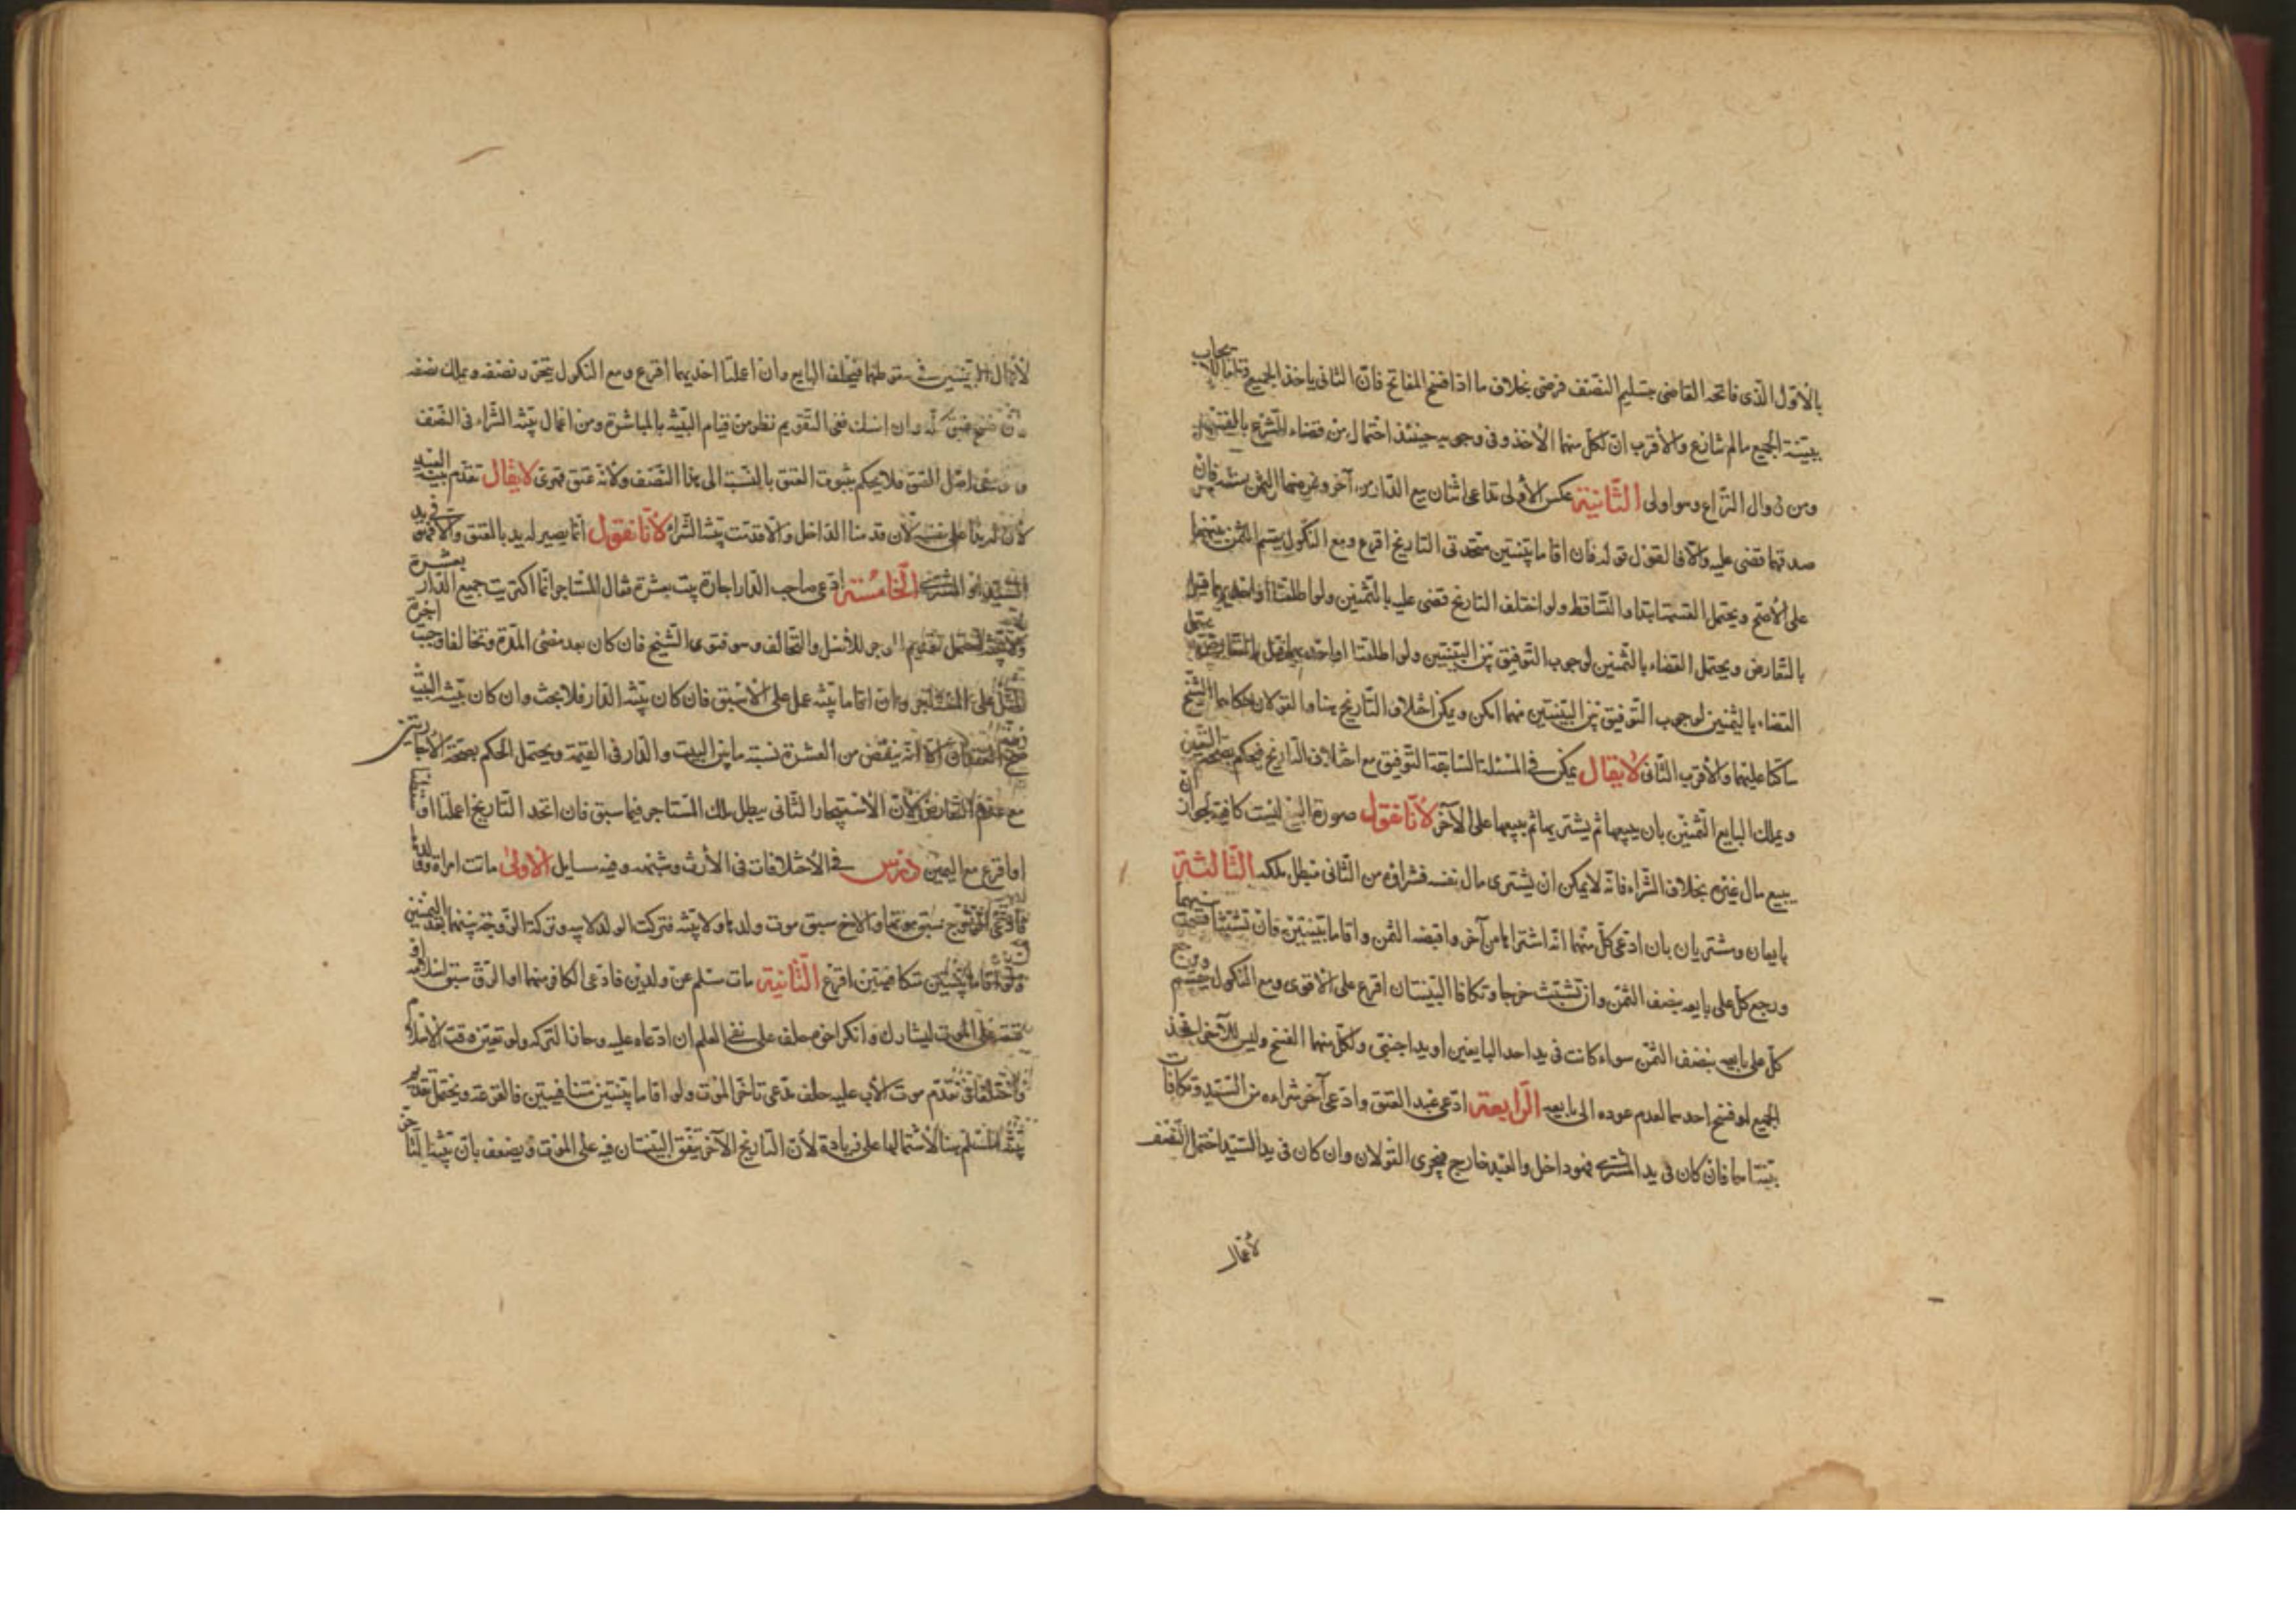 بالأوّل الّذى فاتحه القاضى بتسليم النّصف فرضى بخلاف ما اذا فسخ المفاتح فانّ الثانى ياخذ الجميع
ببيّنة الجميع مالم ينازع والأقرب انّ لكلّ منهما الأخذ وفى وجوبه حينئذ احتمال من قضاء الشّرع
ومن زوال النزاع وهو اولى الثّانية عكس الأولى تداعى اثنان بيع الدّار من آخر وغرضهما الثمن فان
صدقهما قضى عليه والّا فالقول قوله فان اقاما بيّنتين متّحدتى التاريخ اقرع ومع النّكول يقسم الثمن بينهما
على الأصح ويحتمل القسمة ابتداء والتّساقط ولو اختلف التاريخ قضى عليه بالثّمنين ولو اطلقتا او احديهما
بالتّعارض ويحتمل القضاء بالثّمنين لوجوب التّوفيق بين البيّنتين ولو اطلقتا او احديهما
القضاء بالثّمنين لوجوب التّوفيق بين البيّنتين مهما امكن ويمكن اختلاف التّاريخ هنا والقولان حكاهما الشّيخ
ساكتا عليهما والأقرب الثّانى لا يقال يمكن فى المسئلة السّابقة التّوفيق مع اختلاف التّاريخ فيحكم
ويملك البايع الثّمنين بان يبيعها ثم يشتريها ثم يبيعها على الآخر لأنّا نقول صورة البيع ليست كافية لجواز ان
يبيع مال غيره بخلاف الشّراء فانّه لا يمكن ان يشترى مال نفسه فشراؤه من الثّانى مبطل ملكه الثّالثة
بايعان ومشتريان بان ادّعى كلّ منهما انّه اشتراها من آخر واقبضه الثمن واقاما بيّنتين فان تشبّثا قسمت بينهما
ورجع كلّ على بايعه بنصف الثمن وان تشبّث خرجا وتكافا البيّنتان اقرع على الأقوى ومع النّكول يقسم ويرجع
كلّ على بايعه بنصف الثمن سواء كانت فى يد احد البايعين او يد اجنبىّ ولكلّ منهما الفسخ وليس للآخر اخذ
الجميع لو فسخ احدهما لعدم عوده الى بايعه الرّابعة ادّعى عبد العتق وادّعى آخر شراءه من السّيّد وتكافات
بيّنتاهما فان كان فى يد المشترى فهو داخل والعبد خارج فيجرى القولان وان كان فى يد السّيّد احتمل النّصف
لأعمال
لأعمال البيّنتين فى سقوطهما فيحلف البايع وان اعملنا احديهما اقرع ومع النّكول يتحرّر نصفه ويملك نصفه
فان فسخ عتق كلّه وان امسك ففى التّقويم نظر من قيام البيّنة بالمباشرة ومن اعمال بيّنة الشّراء فى النّصف
اصل العتق فلا يحكم بثبوت العتق بالنّسبة الى هذا النّصف ولأنّه عتق قهرى لا يقال تقدّم بيّنة العبد
لأنّ له يدا على نفسه لأن قدمنا الدّاخل والّا قدّمت بيّنة الشّراء لأنّا نقول انّما يصير له يد بالعتق والّا فهو فى يد
السّيّد او المشترى الخامسة ادّعى صاحب الدّار اجارة بيت بعشرة فقال المستاجر انّما اكتريت جميع الدّار بعشرة
ولا بيّنة احتمل تقديم الموجر للأصل والتّحالف وهو فتوى الشّيخ فان كان بعد مضىّ المدّة وتحالفا وجب اجرة
المثل على المستاجر وان اقاما بيّنة عمل على الأسبق فان كان بيّنة الدّار فلا بحث وان كان بيّنة البيت
صحّ العقدان الّا انّه ينقص من العشرة نسبة ما بين البيت والدّار فى القيمة ويحتمل الحكم بصحّة الأجارتين
مع عدم التّعارض لأنّ الأستيجار الثّانى يبطل ملك المستاجر فيما سبق فان اتّحد التّاريخ اعملنا او اسقطنا
او اقرع مع اليمين درس فى الأختلافات فى الأرث وشبهه وفيه مسايل الاولى ماتت امراة وولدها
فادّعى الزّوج سبق موتها والاخ سبق موت ولدها ولا بيّنة فتركت الولد لابيه وتركة الزّوجة بينهما بعد اليمين
ولو اقاما بيّنتين متكافيتين اقرع الثّانية مات مسلم عن ولدين فادّعى الكافر منهما او الرّق سبق اسلامه
عتقه على الموت ليشارك وانكر اخوه حلف على نفى العلم ان ادّعاه عليه وحاز التّركة ولو تعيّن وقت الأسلام
واختلفا فى تقدّم موت الأب عليه حلف مدّعى تاخّر الموت ولو اقاما بيّنتين متنافيتين فالقرعة ويحتمل تقديم
بيّنة المسلم هنا لأشتمالها على زيادة لأنّ التّاريخ الآخر يتّفق البيّنتان فيه على الموت ويضعف بانّ بيّنة